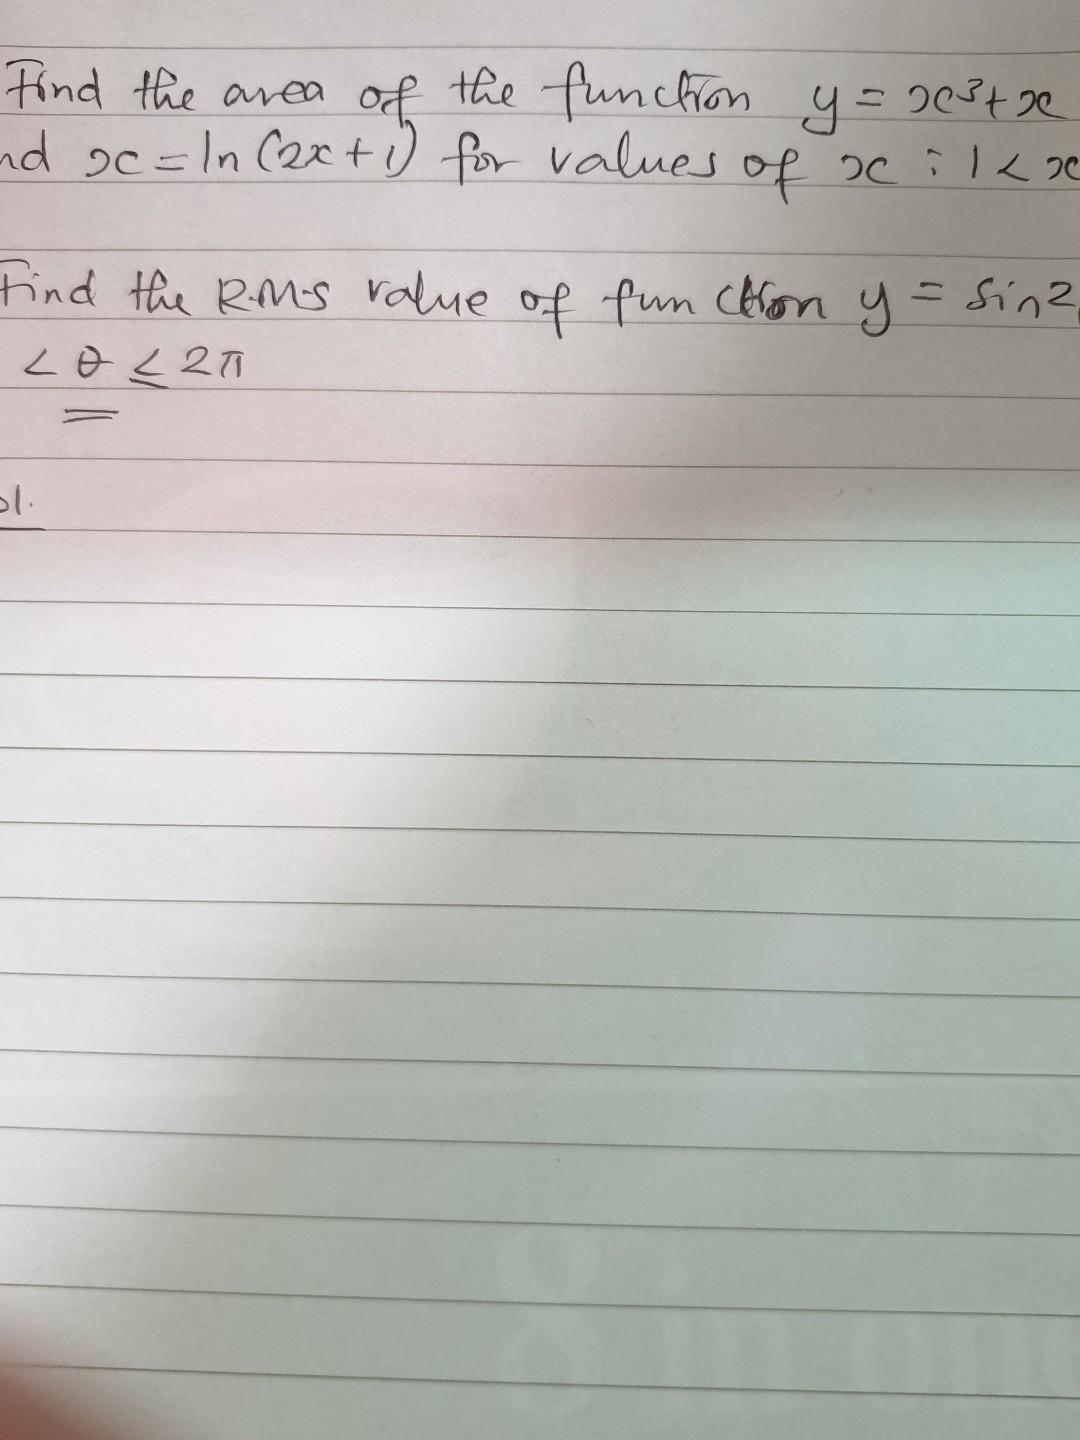 Find the area of the function y = x³+x
nd x = ln (2x+1) for values of x : 1 < x
Find the R.M.S value of function y = sin2
< θ ≤ 2π
ol.
8 in one